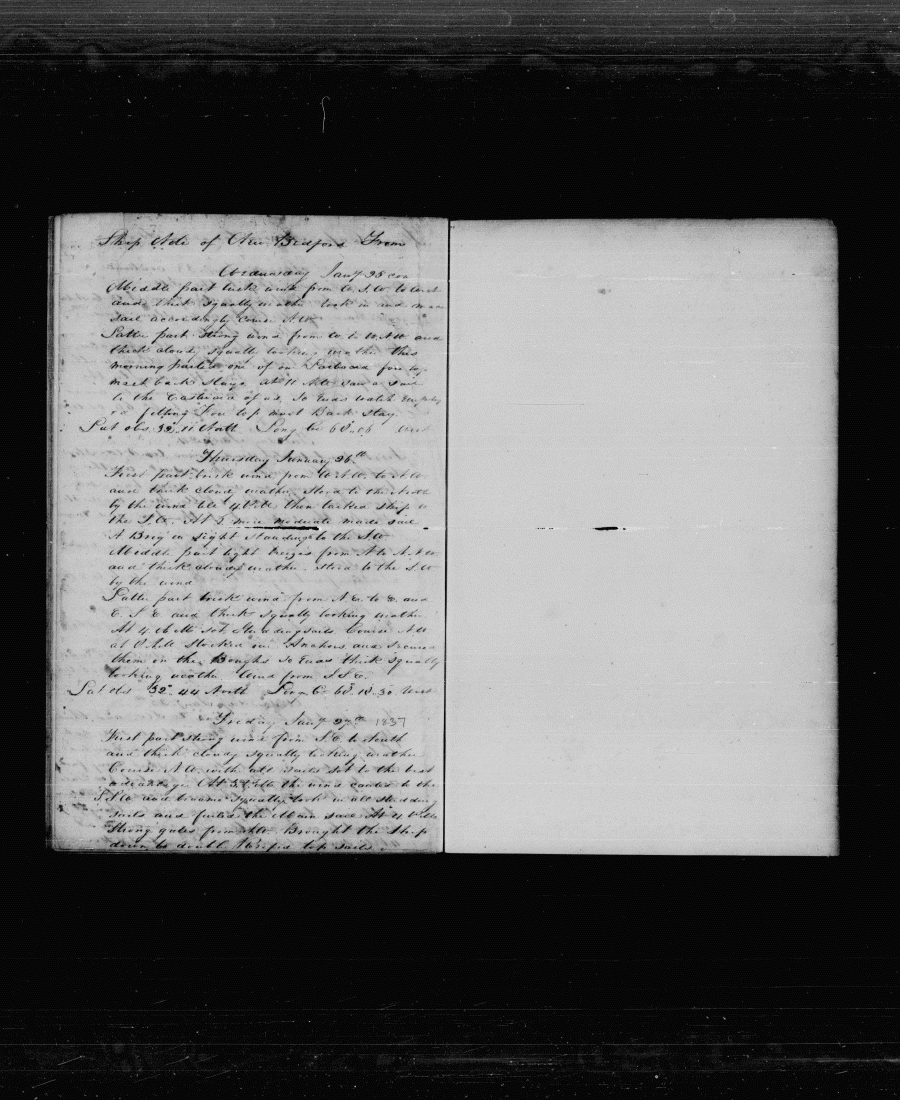 Ship of New Bedford From
Wednesday Jany 25 con
Middle part brisk wind from W S.W. to West
and thick squally weather took in and made
sail accordingly Course N.W
Latter part strong wind from W to W.N.W and
thick cloudy squally looking weather this
morning parted one of our Larboard fore top
mast back stays at 11 A.M. saw a sail
to the Eastward of us, So Ends watch employ
in fitting Fore top mast Back Stay
Lat obs 32.. 11 North Long by 68..06 West
Thursday January 26th
First part brisk wind from W.N.W. to N.W.
and thick cloudy weather. Stood to the
by the wind till 4 P.M. then tacked ship to
the S.W. At 5 more moderate made sail
A Brig in sight standing to the S.W
Middle part light breezes from N to N.N.W
and thick cloudy weather. Stood to the S.W
by the wind
Latter part brisk wind from N.E. to E. and
E. S. E and thick squally looking weather
At 4 set Studdingsails Course N.W
at stocked our Anchors and secured
them on the Boughs So Ends thick squally
looking weather Wind from S.S.E.
Lat obs 32.. 44 North Long by 68.. 18..30 West
Friday Jany 27th 1837
First part strong wind from S.E to South
and thick cloudy squally looking weather
Course N.W. with all sails set to the best
advantage. At the wind canted to the
S.S.W and became squally took in all studding
sails and furled the Main sail At 4 P.M.
Strong gales from Brought the ship
down to double Reefed top sails.